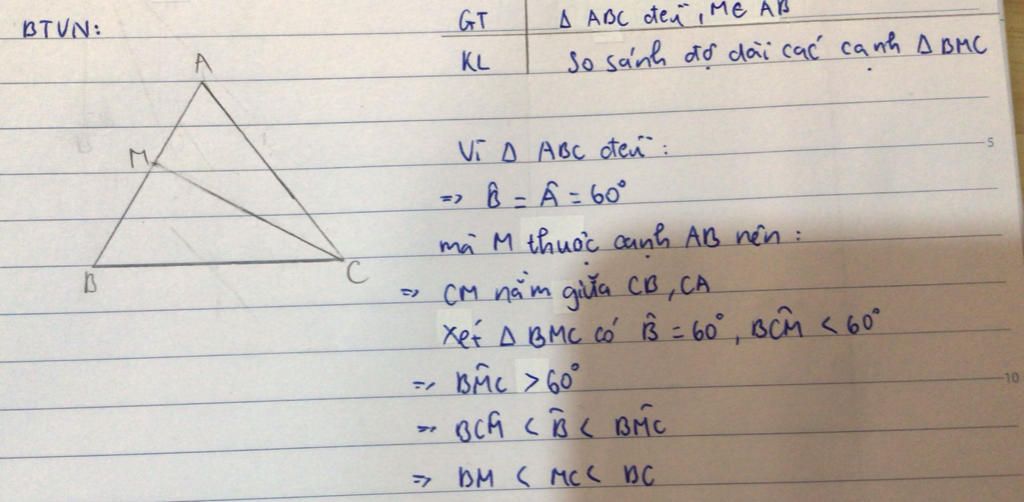 BTVN:
GT Δ ABC đều, M∈ AB
KL So sánh độ dài các cạnh Δ BMC
A
M
B
C
Vì Δ ABC đều:
=> B̂ = Â = 60°
mà M thuộc cạnh AB nên:
=> CM nằm giữa CB, CA
Xét Δ BMC có B̂ = 60°, BĈM < 60°
=> BM̂C > 60°
=> BCM̂ < B̂ < BM̂C
=> BM < MC < BC
5
10